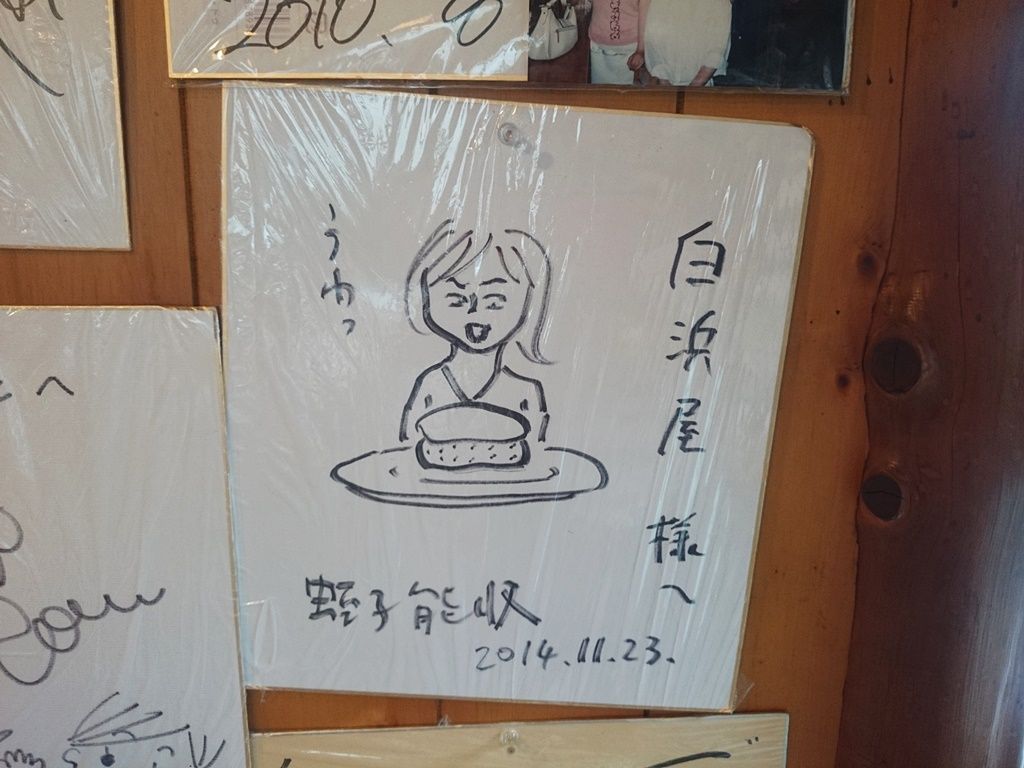 2010.
白浜屋 様へ
うわっ
蛭子能収
2014.11.23.
へ